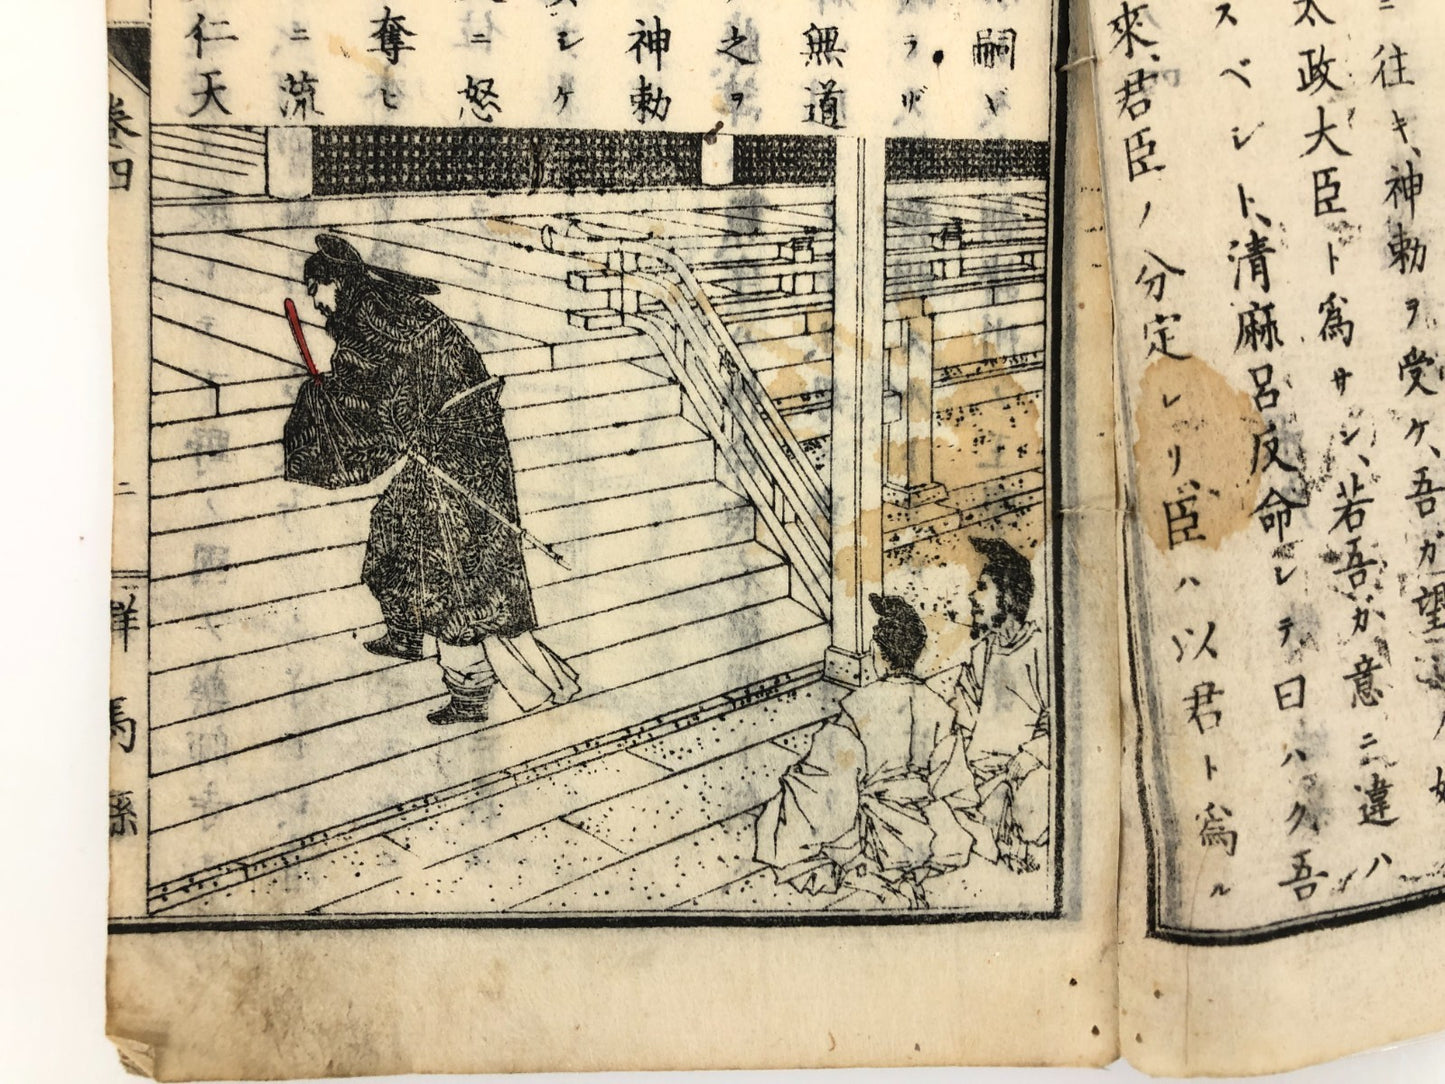 ニ往キ、神勅ヲ受ケ、吾ガ望
太政大臣ト為サン、若吾ガ意ニ違ハ
スベシト、清麻呂反命シテ曰ハク、吾
來、君臣ノ分定レリ、臣ハ以君ト為ル
嗣ハ
ラザ
無道
之ヲ
神勅
シケ
ニ怒
奪ヒ
ニ流
仁天
巻四
二
群馬縣